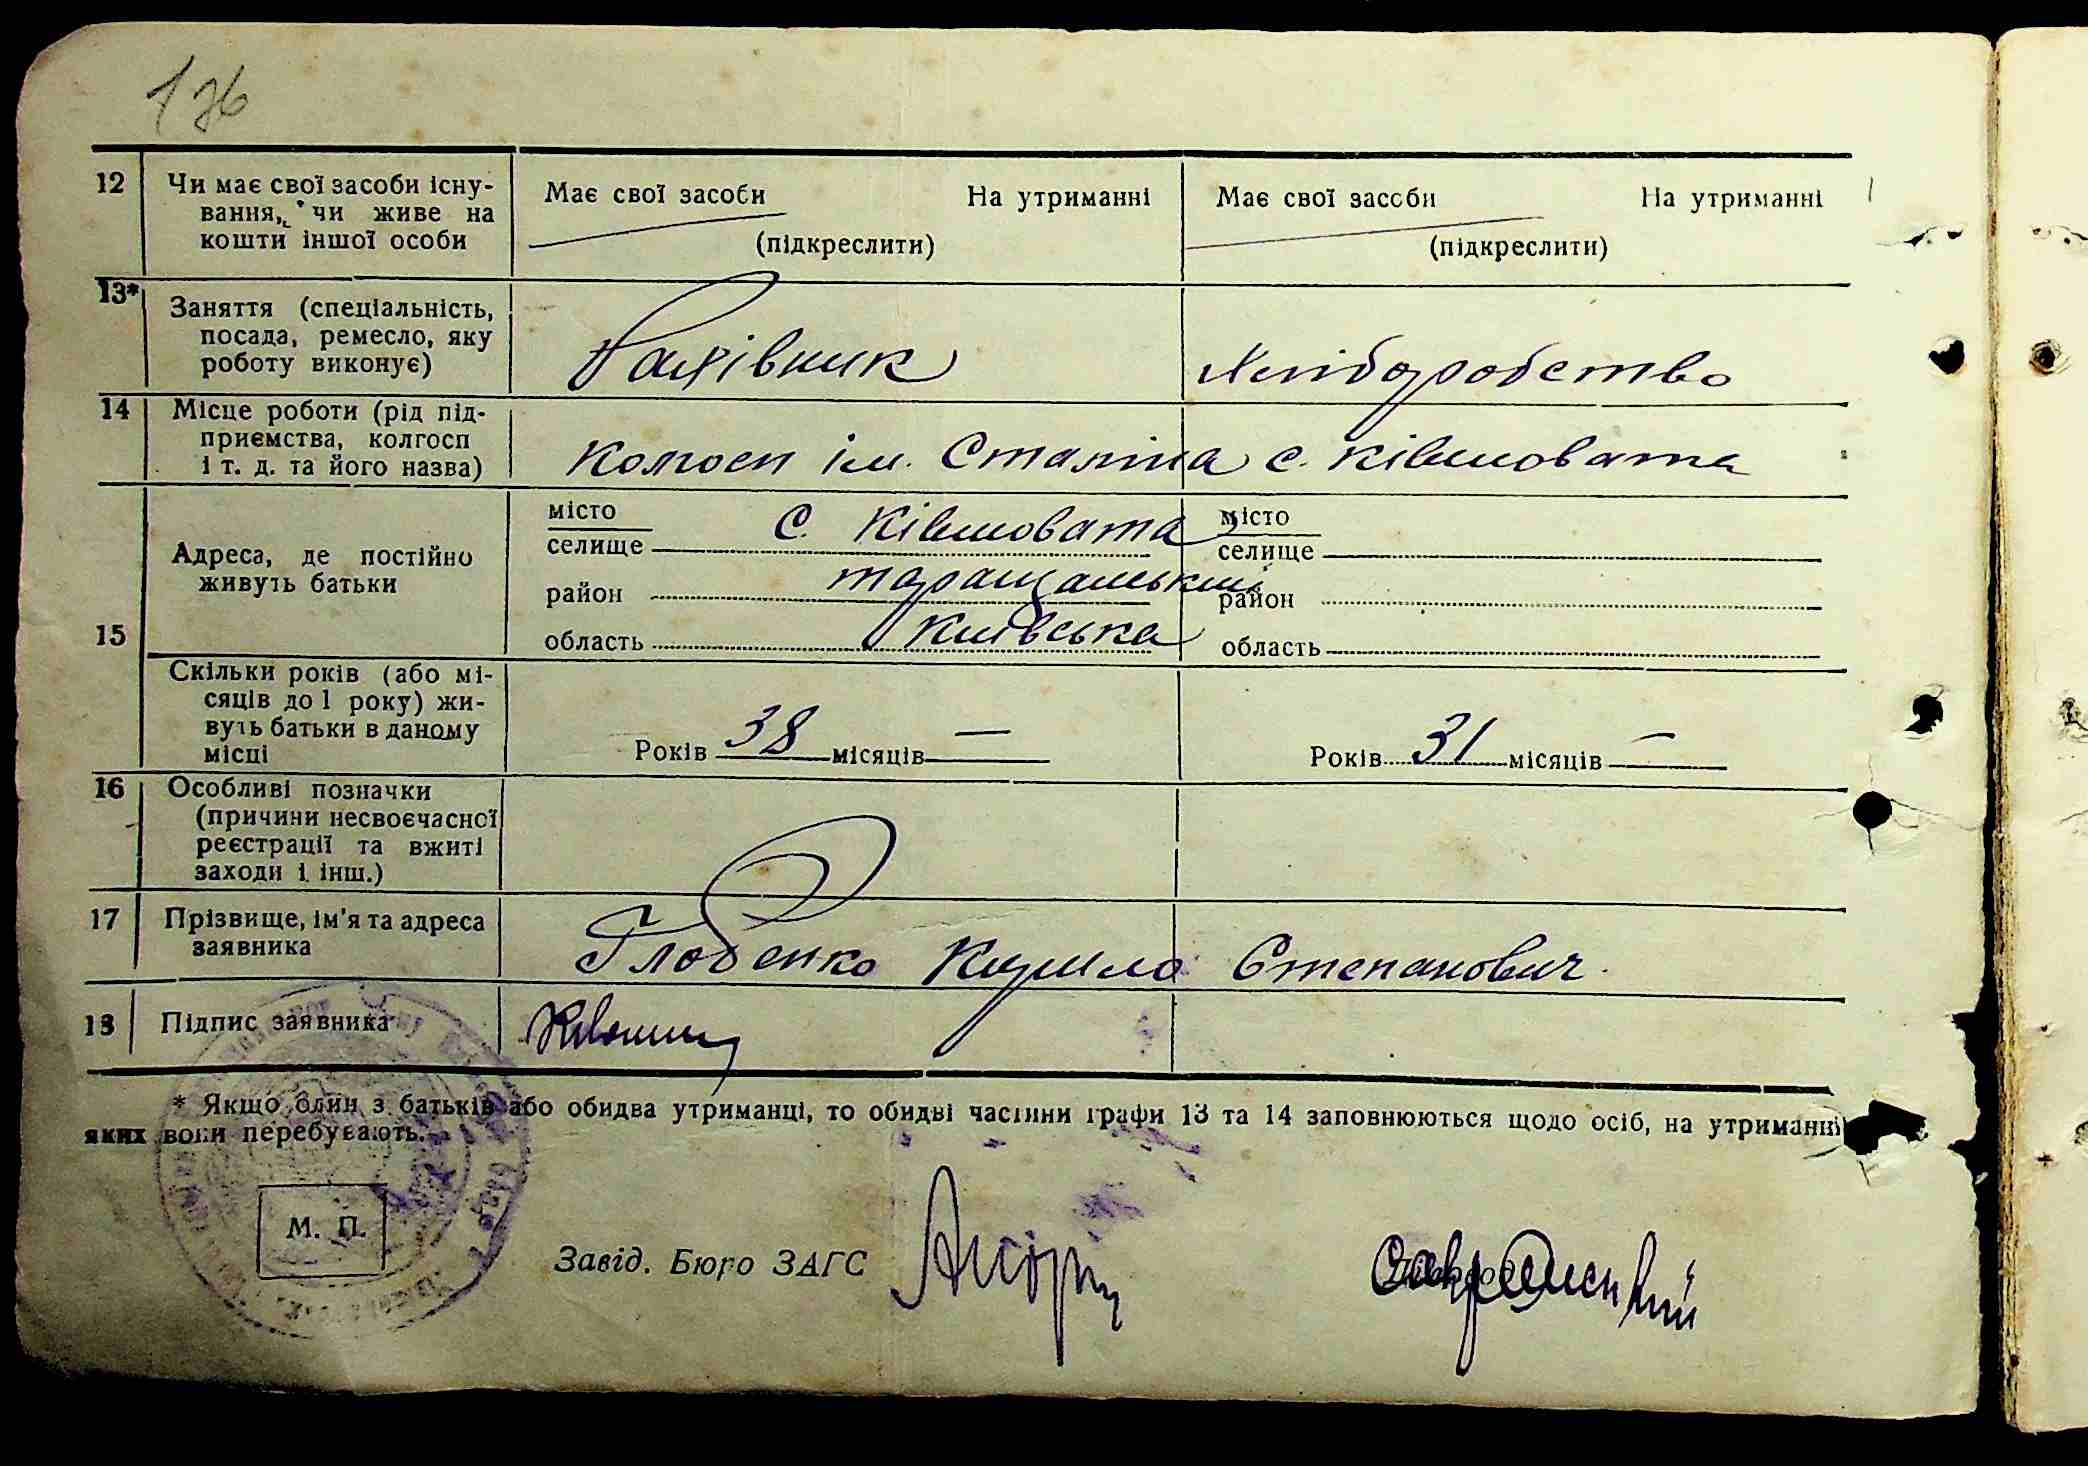 136
12 Чи має свої засоби існу-
вання, чи живе на
кошти іншої особи
Має свої засоби На утриманні
(підкреслити)
Має свої засоби На утриманні
(підкреслити)
13* Заняття (спеціальність,
посада, ремесло, яку
роботу виконує)
Рахівник
Хліборобство
14 Місце роботи (рід під-
приємства, колгосп
і т. д. та його назва)
Колгосп ім. Сталіна с. Ківшовата
15 Адреса, де постійно
живуть батьки
місто
селище с. Ківшовата
район таращанський
область Київська
місто
селище
район
область
Скільки років (або мі-
сяців до 1 року) жи-
вуть батьки в даному
місці
Років 38 місяців —
Років 31 місяців —
16 Особливі позначки
(причини несвоєчасної
реєстрації та вжиті
заходи і інш.)
17 Прізвище, ім'я та адреса
заявника
Глобенко Кирило Степанович.
18 Підпис заявника
* Якщо один з батьків або обидва утриманці, то обидві частини графи 13 та 14 заповнюються щодо осіб, на утриманні
яких вони перебувають.
М. П.
Завід. Бюро ЗАГС